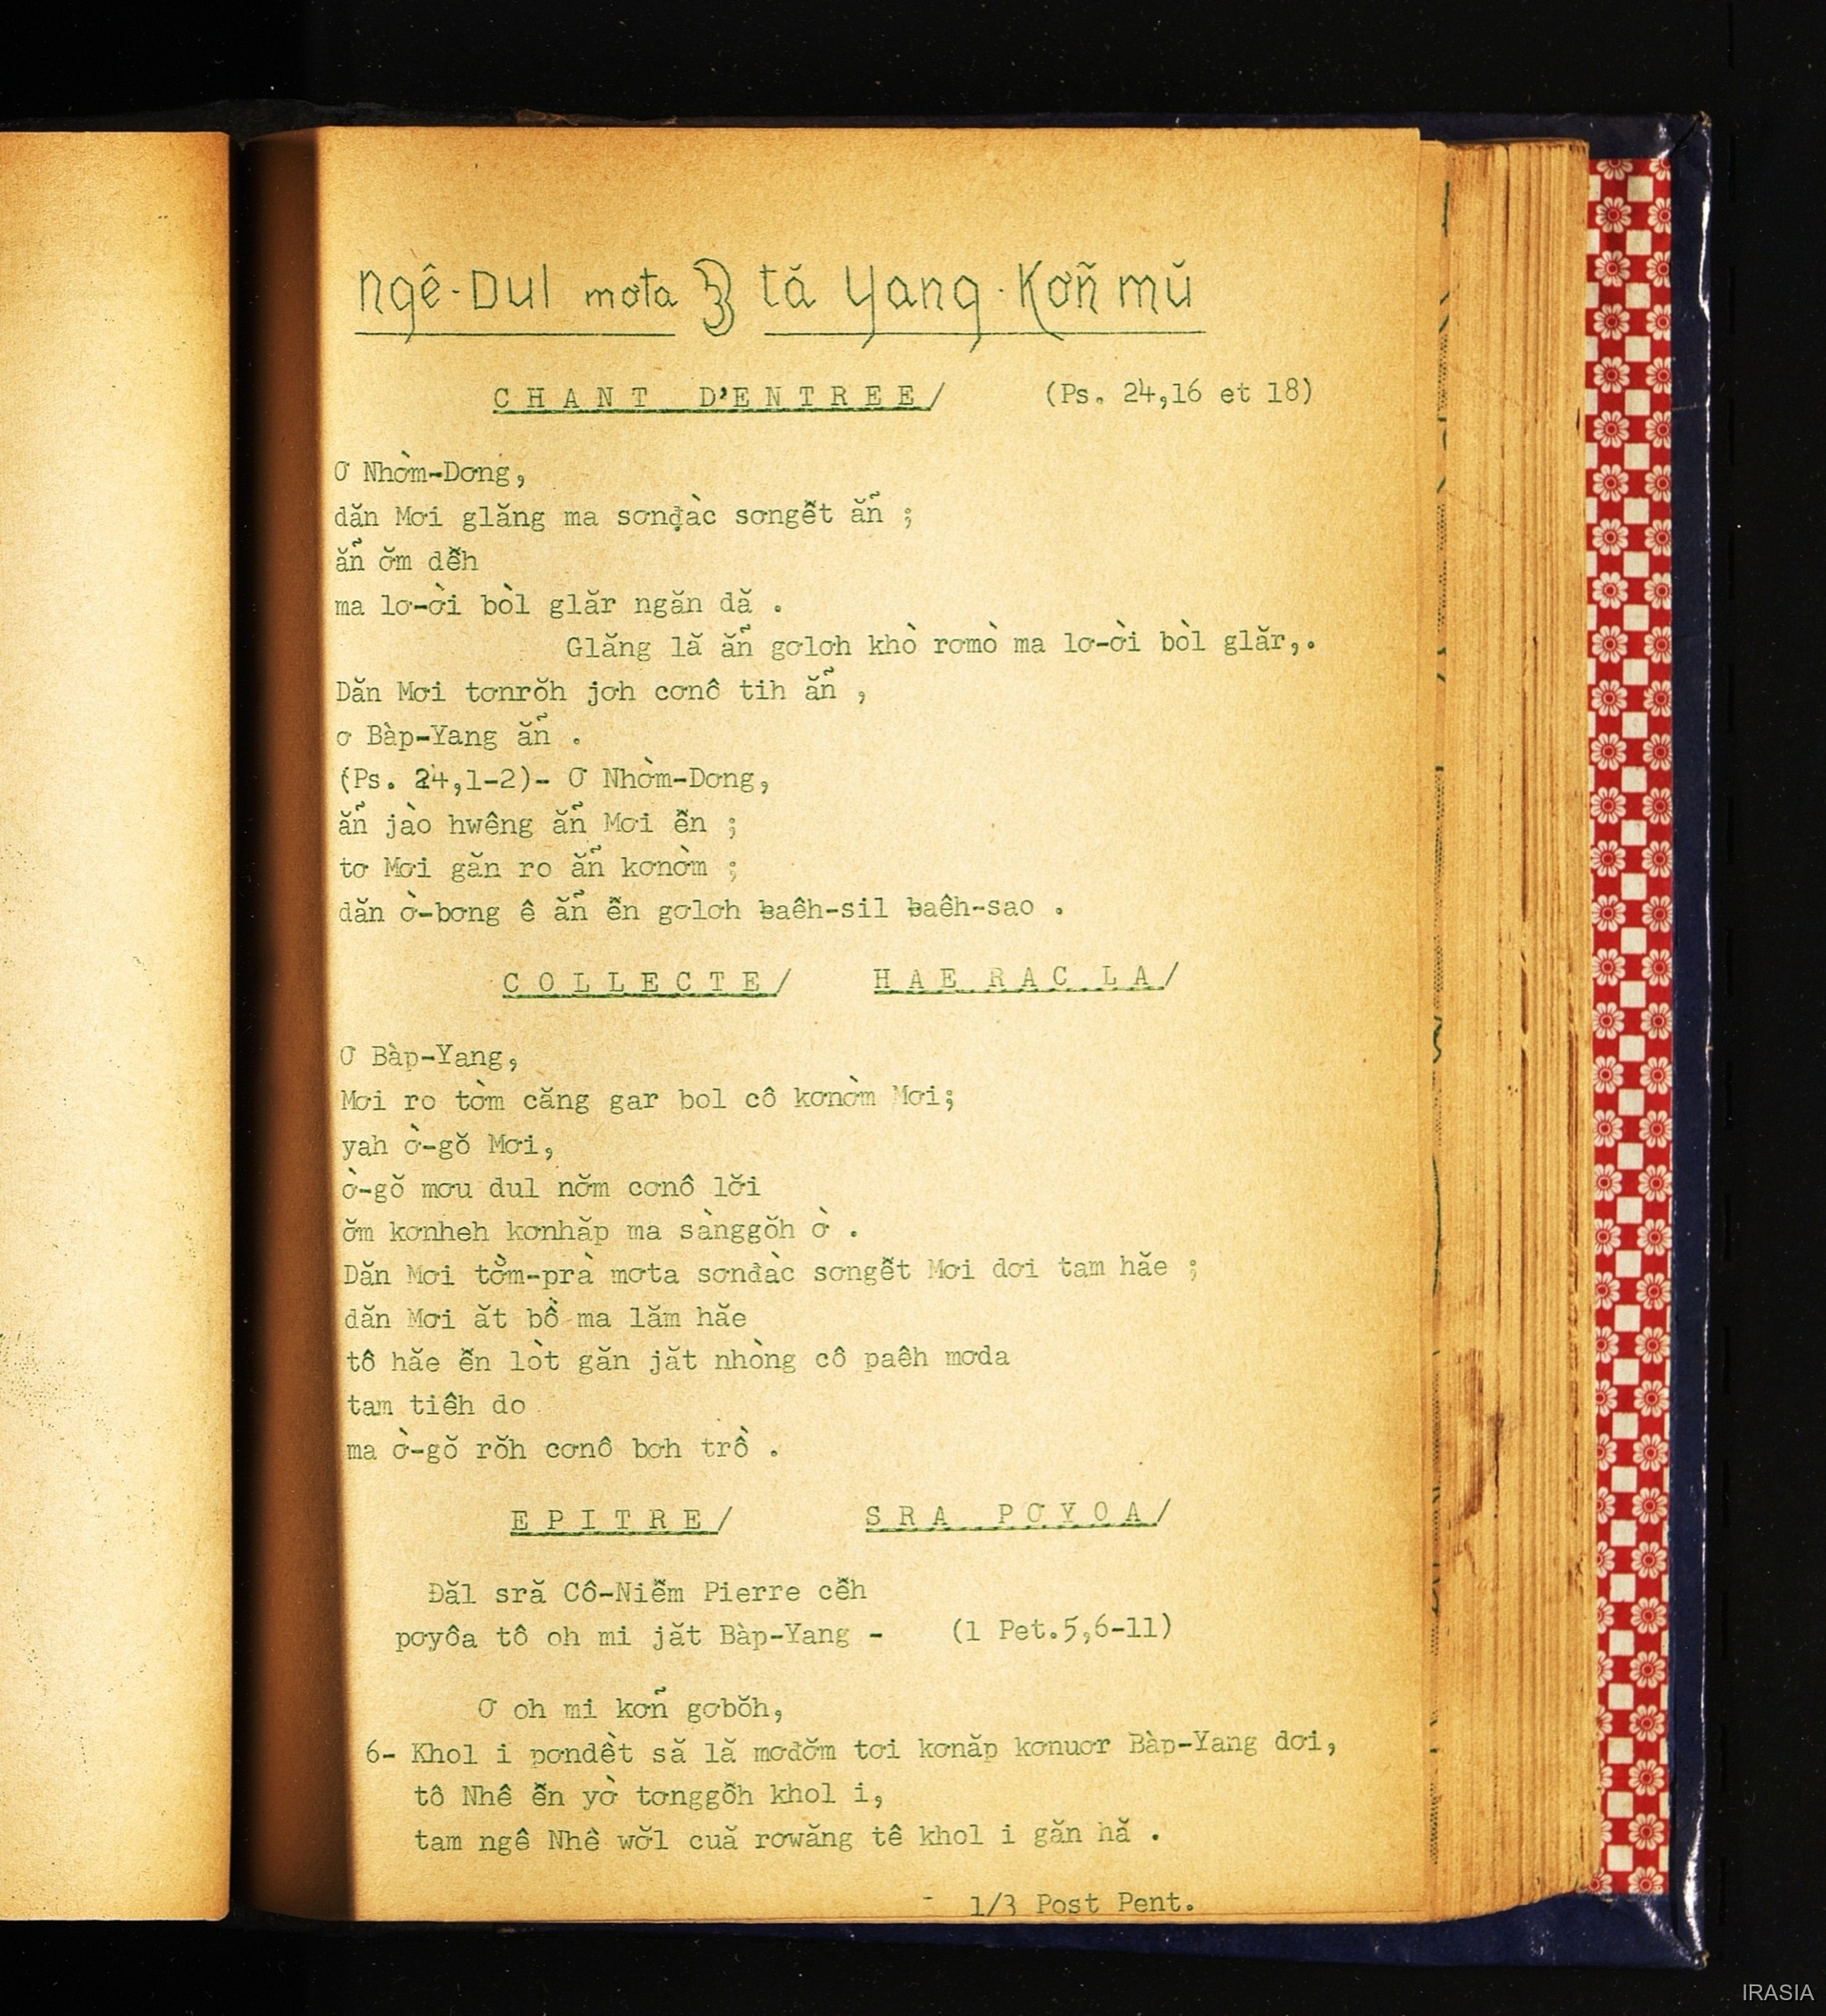 Ngê-Dul mơta 3 tă Yang-Kơñ mŭ
CHANT D'ENTREE/ (Ps. 24,16 et 18)
Ơ Nhờm-Dơng,
dăn Mơi glăng ma sơnđàc sơngễt ẵñ ;
ăñ ờm dễh
ma lơ-ời bòl glăr ngăn dă .
Glăng lă ăñ gơlơh khò rơmò ma lơ-ời bòl glăr,.
Dăn Mơi tơnrŏh jơh cơnô tih ăñ ,
ơ Bàp-Yang ăñ .
(Ps. 24,1-2)- Ơ Nhờm-Dơng,
ăñ jào hwêng ăñ Mơi ễn ;
tơ Mơi găn ro ăñ kơnờm ;
dăn ờ-bơng ê ăñ ễn gơlơh baêh-sil baêh-sao .
COLLECTE/ HAE RAC LA/
Ơ Bàp-Yang,
Mơi ro tờm căng gar bol cô kơnờm Mơi;
yah ờ-gŏ Mơi,
ờ-gŏ mơu dul nơ̆m cơnô lơ̆i
ơ̆m kơnheh kơnhăp ma sànggŏh ờ .
Dăn Mơi tơ̆m-prà mơta sơnđàc sơngễt Mơi dơi tam hăe ;
dăn Mơi ăt bồ ma lăm hăe
tô hăe ễn lòt găn jăt nhòng cô paêh mơda
tam tiêh do
ma ờ-gŏ rŏh cơnô bơh trồ .
EPITRE/ SRA PƠYOA/
Đăl sră Cô-Niễm Pierre cễh
pơyôa tô oh mi jăt Bàp-Yang - (1 Pet.5,6-11)
Ơ oh mi kơñ gơbŏh,
6- Khol i pơndềt să lă mơđơ̆m tơi kơnăp kơnuơr Bàp-Yang dơi,
tô Nhê ễn yờ tơnggỗh khol i,
tam ngê Nhề wơ̆l cuă rơwăng tê khol i găn hă .
- 1/3 Post Pent.
IRASIA